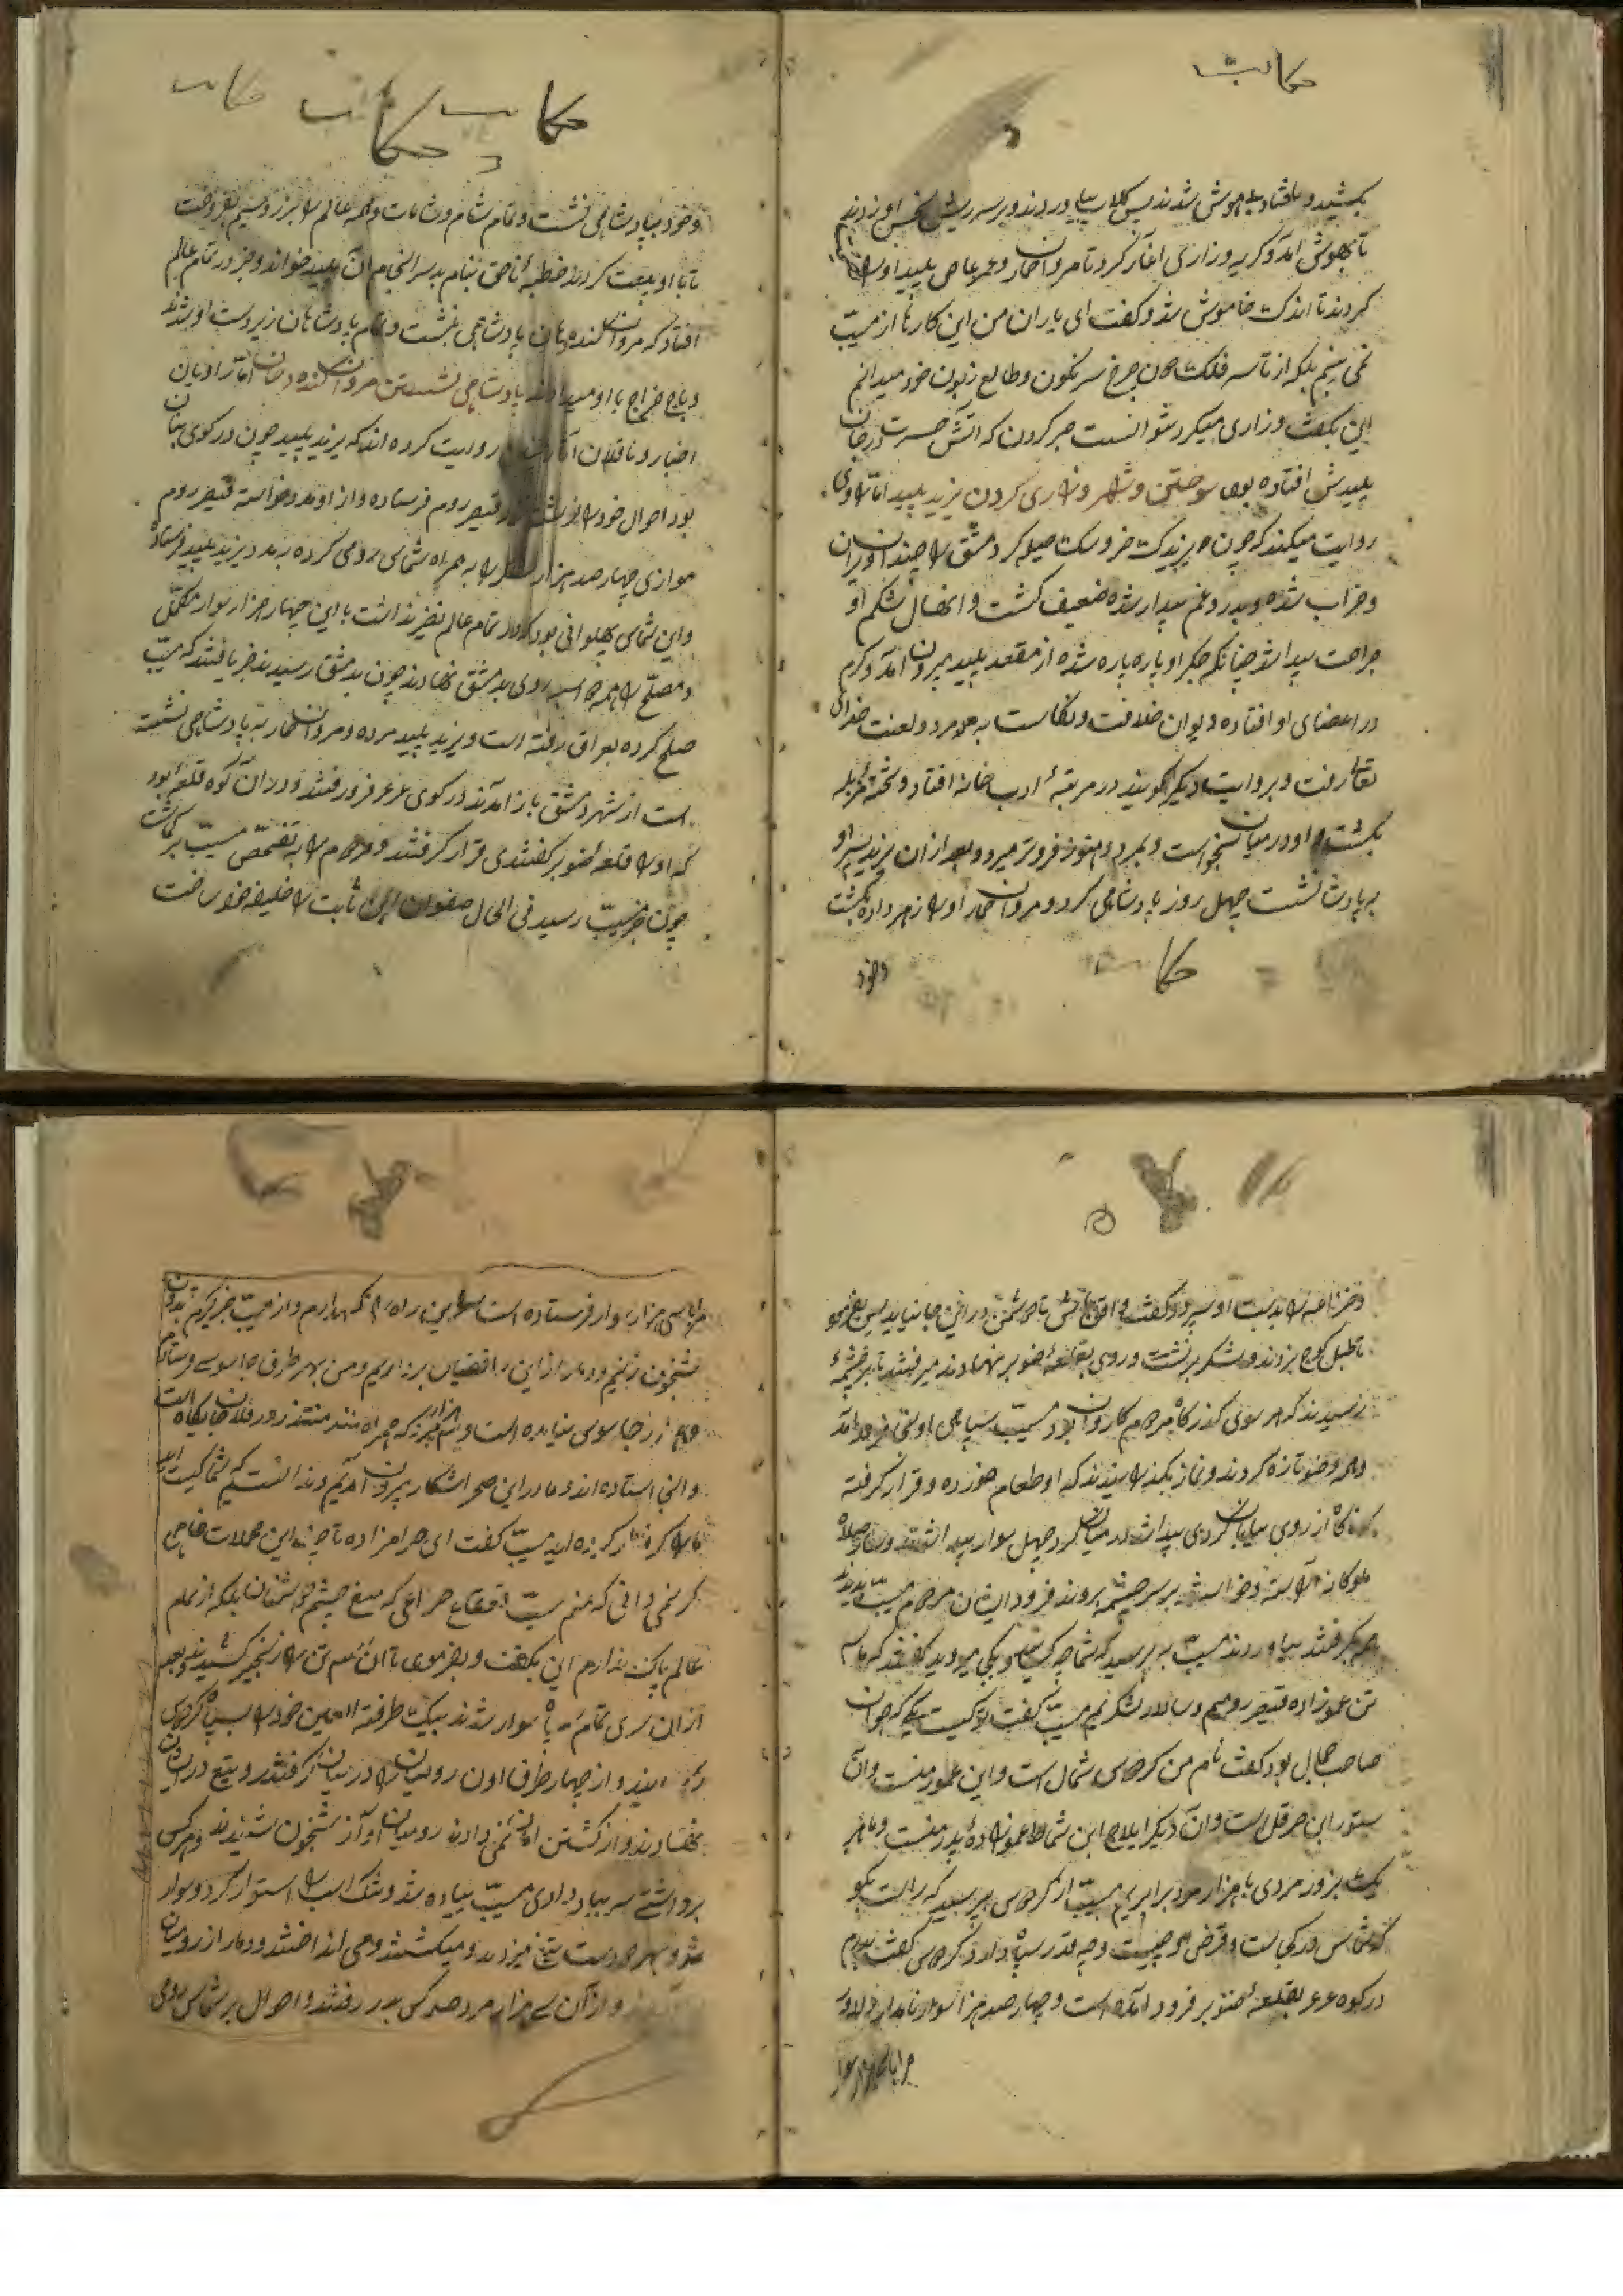 حکایت
بکشید و بافتاد بیهوش شدند پس کلاب بیاوردند و بر سر ریش نحس او زدند
تا بهوش آمد و کریه و زاری آغاز کرد تا مروان حمار و عمر عاص پلید او را
کردند تا اندک خاموش شد و کفت ای یاران من این کارها از مسیّب
نمی بینم بلکه از تاسه فلک چون چرخ سرنکون و طالع زبون خود میدانم
این بکفت و زاری میکرد نتوانست صبر کردن که آتش حسرت در جان
پلیدش افتاده بود سوختن و شهر و زاری کردن یزید پلید اما راوی
روایت میکند که چون یزیدک خروسک حیله کر دمشق را چندان ویران
و خراب شده و بدرد و غم بیدار شده ضعیف کشت و اسهال شکم او
جراحت پیدا شد چنانکه جکر او پاره پاره شده از مقعد پلید بیرون آمد و کرم
در اعضای او افتاده و دیوان خلافت و نکاست بدو مرد و لعنت خدای
تعالی رفت و بروایت دیکر کویند در مرتبهٔ ادب خانه افتاد و تختهٔ مزبله
بکشت و او در میان نجواست و بمرد و هنوز فروتر میرود و بعد از آن یزید پسر او
بر پادشا نشست چهل روز پادشاهی کرد و مروان حمار او را زهر داده بکشت
حکایت
و خود
حکایت حکایت حکایت
و خود بپادشاهی نشست و تمام شام و شامات و همه عالم را بزر و سیم بفروخت
تا با او بیعت کردند خطبهٔ ناحق بنام بد سرانجام آن پلید خواند و خبر در تمام عالم
افتاد که مروان کنده دهان بپادشاهی بنشست و تمام پادشاهان زیردست او شدند
و باج خراج با او میدادند پادشاهی نشستن مروان کنده دهان اما راویان
اخبار و ناقلان آثار روایت کرده اند که یزید پلید چون در کوی بتان
بود احوال خود را نوشته بر قیصر روم فرستاده و از او مدد خواسته قیصر روم
موازی چهار صد هزار سوار را به همراه شماس رومی کرده بمدد یزید پلید فرستاد
و این شماس پهلوانی بود که در تمام عالم نظیر نداشت با این چهار هزار سوار مکمّل
و مصلّح را همه اسب روی بدمشق نهادند چون بدمشق رسیدند خبر یافتند که مسیّب
صلح کرده بعراق رفته است و یزید پلید مرده و مروان حمار به پادشاهی نشسته
است از شهر دمشق باز آمدند در کوی عرعر فرود رفتند و در آن کوه قلعهٔ بود
که او را قلعه صنوبر کفتندی قرار کرفتند و مردم را به تفحّص مسیّب بر کماشت
چون خبر بمسیّب رسید فی الحال صفوان ابن ثابت را خلیفه خود ساخت
و خزانه را بدست او سپرد و کفت واقف باش تا دشمن در این جا نیاید پس بفرمود
تا طبل کوچ بزدند و لشکر برنشست و روی بقلعهٔ صنوبر نهادند میرفتند تا بر چشمهٔ
رسیدند که هر سوی کذرکاه مردم کاروان بود مسیّب سپاهی او نیز فرود آمد
و همه وضو تازه کردند و نماز بکذاریدند که او طعام خورده و قرار کرفته
که ناکاه از روی بیابان کردی پیدا شد در میان کرد چهل سوار پیدا شدند
ملوکانه آراسته و خواستند بر سر چشمه بروند فرود ایشان مردم مسیّب بدیدند
همه بکرفتند بیاوردند مسیّب بپرسید که شما چه کسید و بکجا میروید کفتند که ما سه
تن عموزاده قیصر رومیم و سالار لشکریم مسیّب کفت نام تو کیست یکی که جوان
صاحب جمال بود کفت نام من کرطاس شماس است و این عموز منست و آن
ستور ابن هرقل است و آن دیکر ایلاج ابن شماط عموزادهٔ پدر منست و ما هر
یک بزور مردی با هزار مرد برابریم مسیّب از کرطاس پرسید که راست بکو
که شماس در کجاست و غرض او چیست و چه قدر سپاه دارد کرطاس کفت پدرم
در کوه عرعر بقلعهٔ صنوبر فرود آمده است و چهار صد هزار سوار نامدار دلاور
مرا با سی هزار سوار
مرا با سی هزار سوار فرستاده است تا این راه را نکهدارم و از مسیّب خبر کیرم بدان
شبخون زنیم و دمار از این رافضیان برداریم و من بهر طرف جاسوس فرستادم
و هم از جاسوسی نیامده است و هزار که همراه منند در فلان جایکاه است
و آنجا استاده اند و ما در این صحرا شکار بیرون آمدیم و ندانستیم شما کیستید
ما را کرفتار کرده اید مسیّب کفت ای حرامزاده تا چند این مهملات خواهی
کر نمیدانی که منم مسیّب قعقاع خزاعی که میغ چشم دشمنان بلکه از تمام
عالم پاک ندارم این بکفت و بفرمود تا آن سه تن را زنجیر کشیدند و بعد
از آن سری تمام سپاه سوار شدند بیک طرفة العین خود را بسپاه کرطاس
رسانیدند و از چهار طرف آن رومیان را در میان کرفتند و تیغ در ایشان
نهادند و از کشتن امان نمی دادند رومیان آواز شبخون شنیدند و هر کس
برداشتی سر بباد دادی مسیّب پیاده شد و تنک اسب را استوار کرد و سوار
شد و بهر دو دست تیغ میزدند و میکشتند و می انداختند و دمار از رومیان
و از آن سی هزار مرد صد کس بدر رفتند و احوال بر شماس رومی